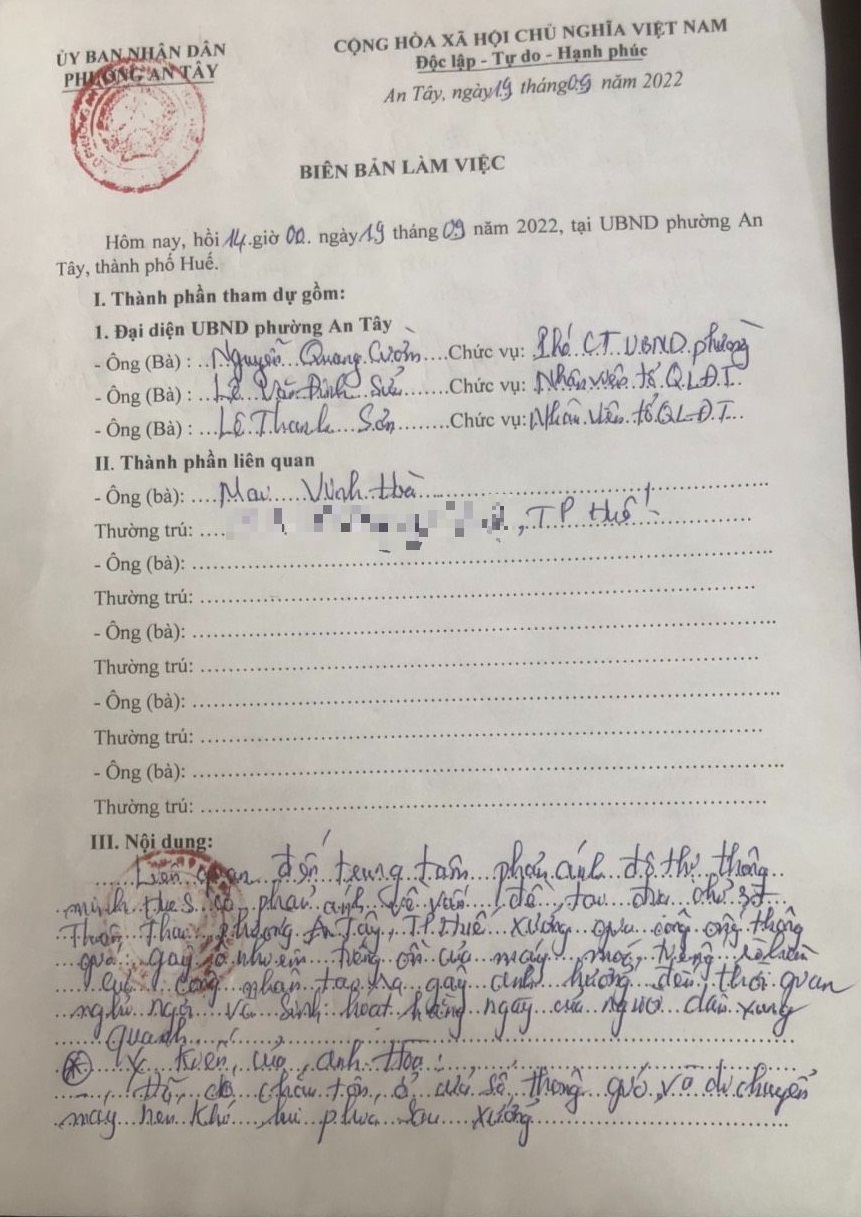 ỦY BAN NHÂN DÂN
PHƯỜNG AN TÂY
CỘNG HÒA XÃ HỘI CHỦ NGHĨA VIỆT NAM
Độc lập - Tự do - Hạnh phúc
An Tây, ngày 19 tháng 09 năm 2022
BIÊN BẢN LÀM VIỆC
Hôm nay, hồi 14 giờ 00. ngày 19 tháng 09 năm 2022, tại UBND phường An
Tây, thành phố Huế.
I. Thành phần tham dự gồm:
1. Đại diện UBND phường An Tây
- Ông (Bà) : Nguyễn Quang Cườm Chức vụ: Phó CT UBND phường
- Ông (Bà) : Lê Văn Đình Sửu Chức vụ: Nhân viên tổ QLĐT
- Ông (Bà) : Lê Thanh Sơn Chức vụ: Nhân viên tổ QLĐT
II. Thành phần liên quan
- Ông (bà): Mai Vinh Hoà
Thường trú: , TP Huế
- Ông (bà):
Thường trú:
- Ông (bà):
Thường trú:
- Ông (bà):
Thường trú:
- Ông (bà):
Thường trú:
III. Nội dung:
Liên quan đến trung tâm phản ánh đô thị thông
minh HueS có phản ánh về vấn đề, tại địa chỉ
phường An Tây, TP Huế xưởng
gây ô nhiễm tiếng ồn của máy móc, tiếng
công nhân tạo ra gây ảnh hưởng đến thời gian
nghỉ ngơi và sinh hoạt hằng ngày của người dân xung
quanh
* Ý kiến của anh Hoà:
Đã che chắn tôn, ở cửa sổ thông gió, và di chuyển
máy nén khí lui phía sau xưởng